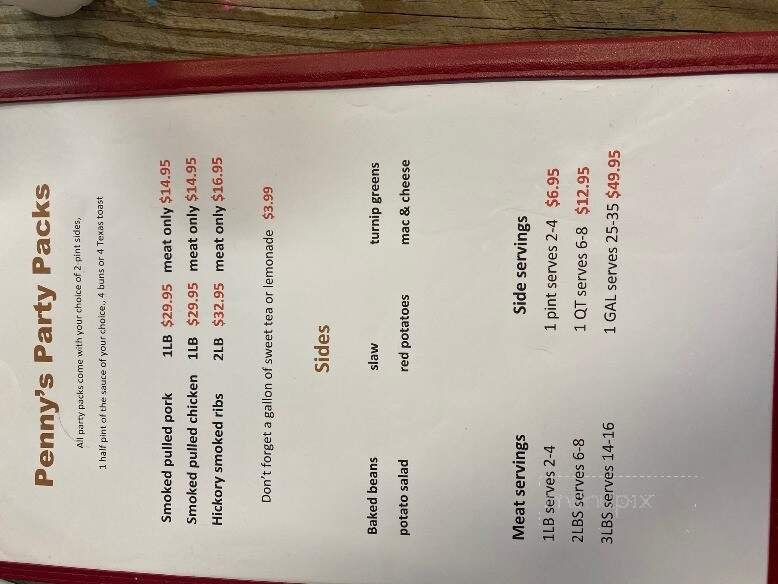 Penny's Party Packs
All party packs come with your choice of 2-pint sides,
1 half pint of the sauce of your choice., 4 buns or 4 Texas toast
Smoked pulled pork 1LB $29.95 meat only $14.95
Smoked pulled chicken 1LB $29.95 meat only $14.95
Hickory smoked ribs 2LB $32.95 meat only $16.95
Don't forget a gallon of sweet tea or lemonade $3.99
Sides
Baked beans slaw turnip greens
potato salad red potatoes mac & cheese
Meat servings Side servings
1LB serves 2-4 1 pint serves 2-4 $6.95
2LBS serves 6-8 1 QT serves 6-8 $12.95
3LBS serves 14-16 1 GAL serves 25-35 $49.95